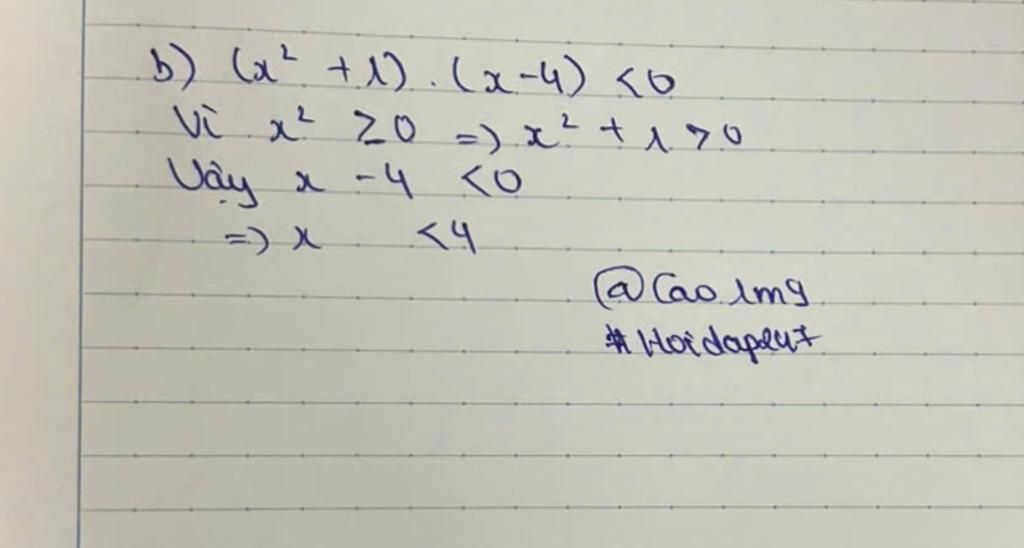 b) (x² + 1) . (x - 4) < 0
Vì x² ≥ 0 => x² + 1 > 0
Vậy x - 4 < 0
=> x < 4
@Cao1m9
#Hoidap247